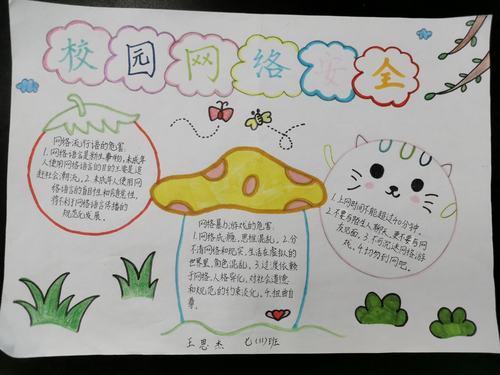 校园网络安全
网络流行语的危害
1.网络语言是新生事物,未成年
人使用网络语言的目的主要是追
赶社会潮流。2.未成年人使用网
络语言的盲目性和随意性,
将不利于网络语言传播的
规范化发展。
网络暴力游戏的危害
1.网络成瘾,思维混乱。2.分
不清网络和现实,生活在虚拟的
世界里,角色混乱。3.过度依赖
于网络,人格异化,对社会道德
和规范的约束淡化。4.扭曲自
尊。
1.上网时间不能超过40分钟。
2.不要与陌生人聊天,更不要与网
友见面。3.不可沉迷网络游
戏。4.切勿到网吧。
王思杰 七(11)班